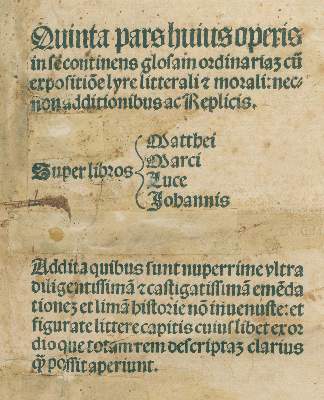 Quinta pars huius operis
in sē continens glosam ordinariaꝫ cū
expositiōe lyre litterali ⁊ morali: nec-
non additionibus ac Replicis.
Super libros
Matthei
Marci
Luce
Johannis
Addita quibus sunt nuperrime yltra
diligentissimā ⁊ castigatissimā emēda
tioneꝫ et limā historie nō inuenuste: et
figurate littere capitis cuiuslibet exor
dio que totam rem descriptaꝫ clarius
ꝙ̄ possit aperiunt.